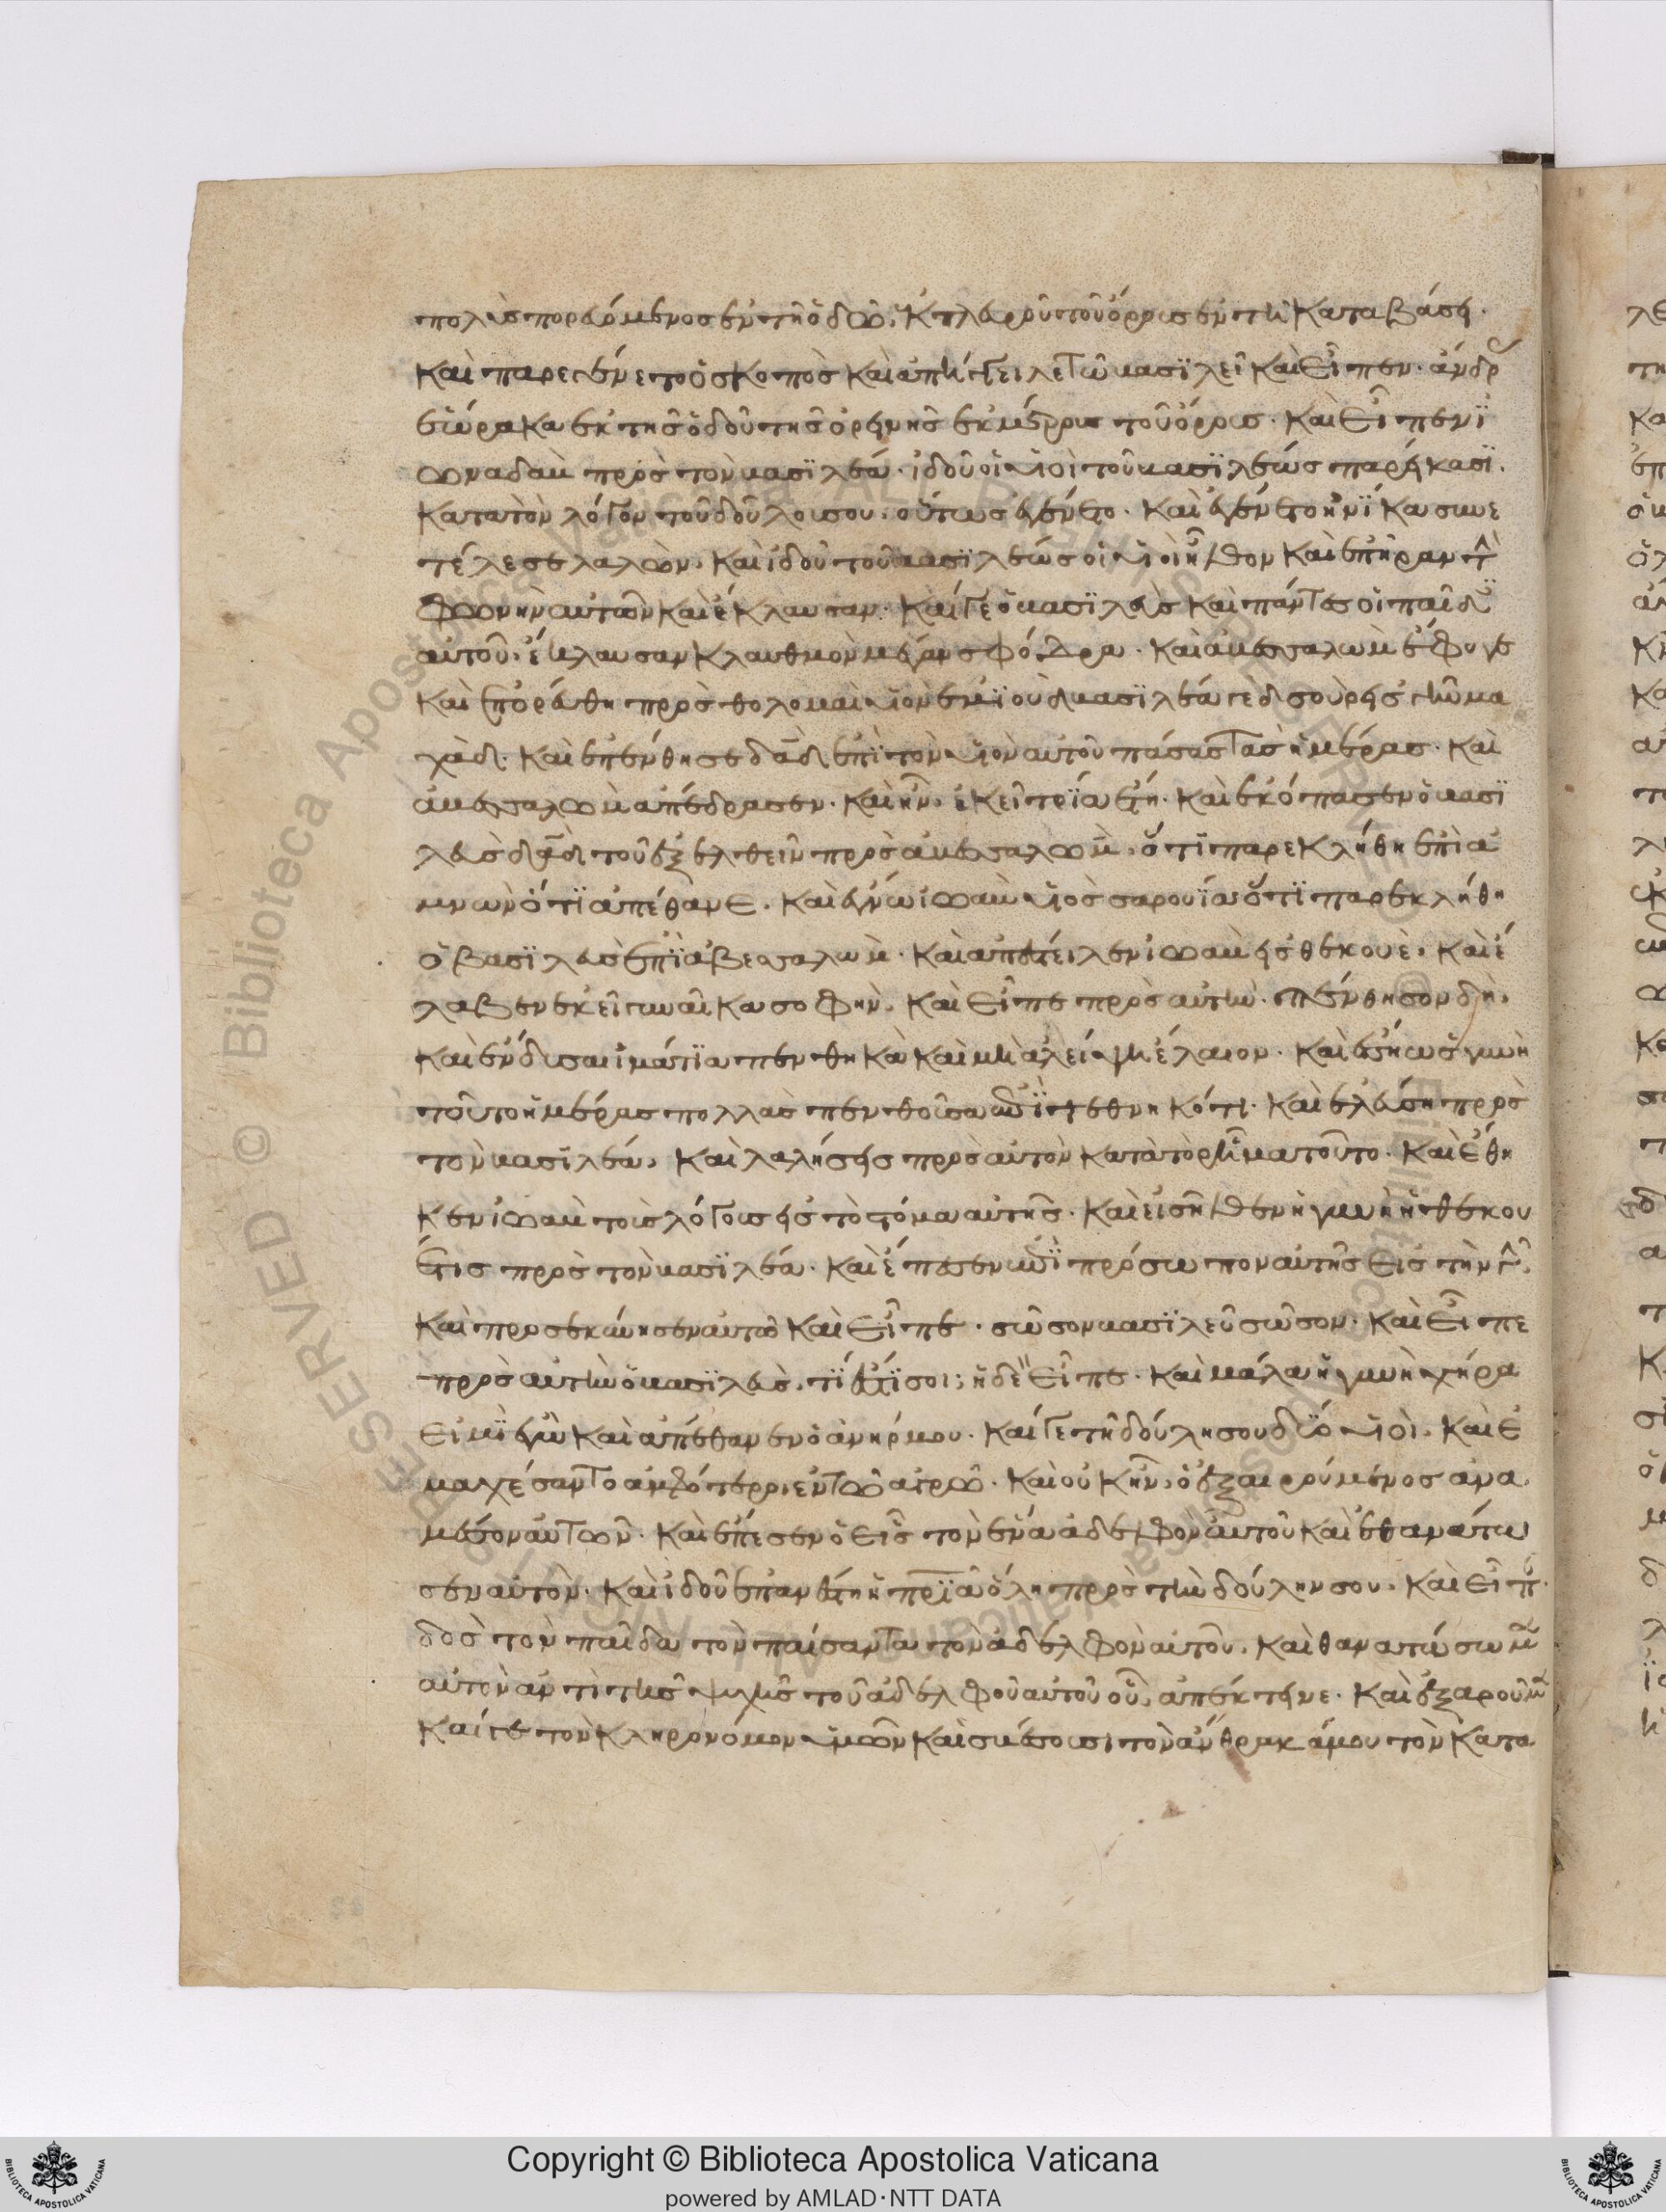 πολὺς πορευόμενος ἐν τῆ ὁδῶ, ἐκ πλευροῦ τοῦ ὄρους ἐν τῆ καταβάσει.
καὶ παρεγένετο ὁ σκοπὸς καὶ ἀπήγγειλε τῶ βασϊλεῖ καὶ εἶπεν. ἄνδρ
ἑώρακα ἐκ τῆς ὁδοῦ τῆς ὀρεινῆς ἐκ μέρους τοῦ ὄρους. καὶ εἶπεν ϊ
ωναδαμ πρὸς τὸν βασϊλέα. ἰδοὺ οἱ υἱοὶ τοῦ βασϊλέως πάρεισϊ.
κατὰ τὸν λόγον τοῦ δούλου σου. οὕτως ἐγένετο. καὶ ἐγένετο ἡνίκα συνε
τέλεσε λαλῶν. καὶ ἰδοὺ τοῦ βασϊλέως οἱ υἱοὶ ἦλθον καὶ ἐπῆραν τ
φωνὴν αὐτῶν καὶ ἔκλαυσαν. καί γε ὁ βασϊλεὺς καὶ πάντες οἱ παῖδ
αὐτοῦ. ἔκλαυσαν κλαυθμὸν μέγαν σφόδρα. καὶ ἀβεσσαλὼμ ἔφυγε
καὶ ἐπορεύθη πρὸς θολομαὶ υἱὸν ἐμϊοὺδ βασϊλέα γεδσοὺρ εἰς γῆν μα
χάδ. καὶ ἐπένθησε δᾱδ ἐπὶ τὸν υἱὸν αὐτοῦ πάσας τὰς ἡμέρας. καὶ
ἀβεσσαλὼμ ἀπέδρασεν. καὶ ἦν ἐκεῖ τρία ἔτη. καὶ ἐκόπασεν ὁ βασϊ
λεὺς δᾱδ τοῦ ἐξελθεῖν πρὸς ἀβεσσαλώμ. ὅτϊ παρεκλήθη ἐπὶ ἀ
μνὼν ὅτϊ ἀπέθανε. καὶ ἔγνω ἰωαὺ υἱὸς σαρουΐα ὅτϊ παρεκλήθη
ὁ βασϊλεὺς ἐπϊ ἀβεσσαλώμ. καὶ ἀπέστειλεν ἰωαὺ εἰς θεκουὲ. καὶ ἔ
λαβεν ἐκεῖ γυναῖκα σοφὴν. καὶ εἶπε πρὸς αὐτὴν. πένθησον δὴ.
καὶ ἔνδυσαι ἱμάτϊα πενθηκὰ καὶ μὴ ἀλείψη ἔλαιον. καὶ ἔση ὡς γυνὴ
τοῦτο ἡμέρας πολλὰς πενθοῦσα ἐπϊ τεθνηκότι. καὶ ἐλεύση πρὸς
τὸν βασϊλέα. καὶ λαλήσεις πρὸς αὐτὸν κατὰ τὸ ῥῆμα τοῦτο. καὶ ἔθη
κεν ἰωαὺ τοὺς λόγους εἰς τὸ στόμα αὐτῆς. καὶ εἰσῆλθεν ἡ γυνὴ ἡ θεκου
έτις πρὸς τὸν βασϊλέα. καὶ ἔπεσεν ἐπὶ πρόσωπον αὐτῆς εἰς τὴν γῆν.
καὶ προσεκύνησεν αὐτῶ καὶ εἶπε. σῶσον βασϊλεῦ σῶσον. καὶ εἶπε
πρὸς αὐτὴν ὁ βασϊλεὺς. τϊ ἐστΐ σοι; ἡ δὲ εἶπε. καὶ μάλα ἡ γυνὴ χήρα
εἰμϊ ἐγὼ καὶ ἀπέθανεν ὁ ἀνήρ μου. καί γε τῆ δούλη σου δύο υἱοὶ. καὶ ἐ
μαχέσαντο ἀμφότεροι ἐν τῶ ἀγρῶ. καὶ οὐκ ἦν ὁ ἐξαιρούμενος ἀνα
μέσον αὐτῶν. καὶ ἔπεσεν ὁ εἷς τὸν ἕνα ἀδελφὸν αὐτοῦ καὶ ἐθανάτω
σεν αὐτὸν. καὶ ἰδοῦ ἐπανέστη ἡ πρϊὰ ὅλη πρὸς τὴν δούλην σου. καὶ εἶπ
δὸς τὸν παῖδα τὸν παίσαντα τὸν ἀδελφὸν αὐτοῦ. καὶ θανατώσωμ
αὐτὸν ἀντὶ τῆς ψυχῆς τοῦ ἀδελφοῦ αὐτοῦ οὗ ἀπέκτεινε. καὶ ἐξαροῦμ
καί γε τὸν κληρονόμον ὑμῶν καὶ σβέσουσι τὸν ἄνθρακά μου τὸν κατα
Copyright © Biblioteca Apostolica Vaticana
powered by AMLAD·NTT DATA